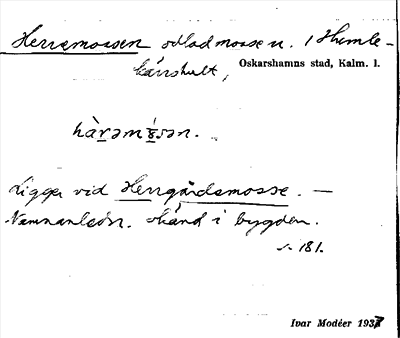 Herremossen odlad mosse n. i Humle-
kärrshult,
Oskarshamns stad, Kalm. l.
Ligger vid Herrgårdsmosse. —
Namnanledn. okänd i bygden.
s. 181.
Ivar Modéer 1937